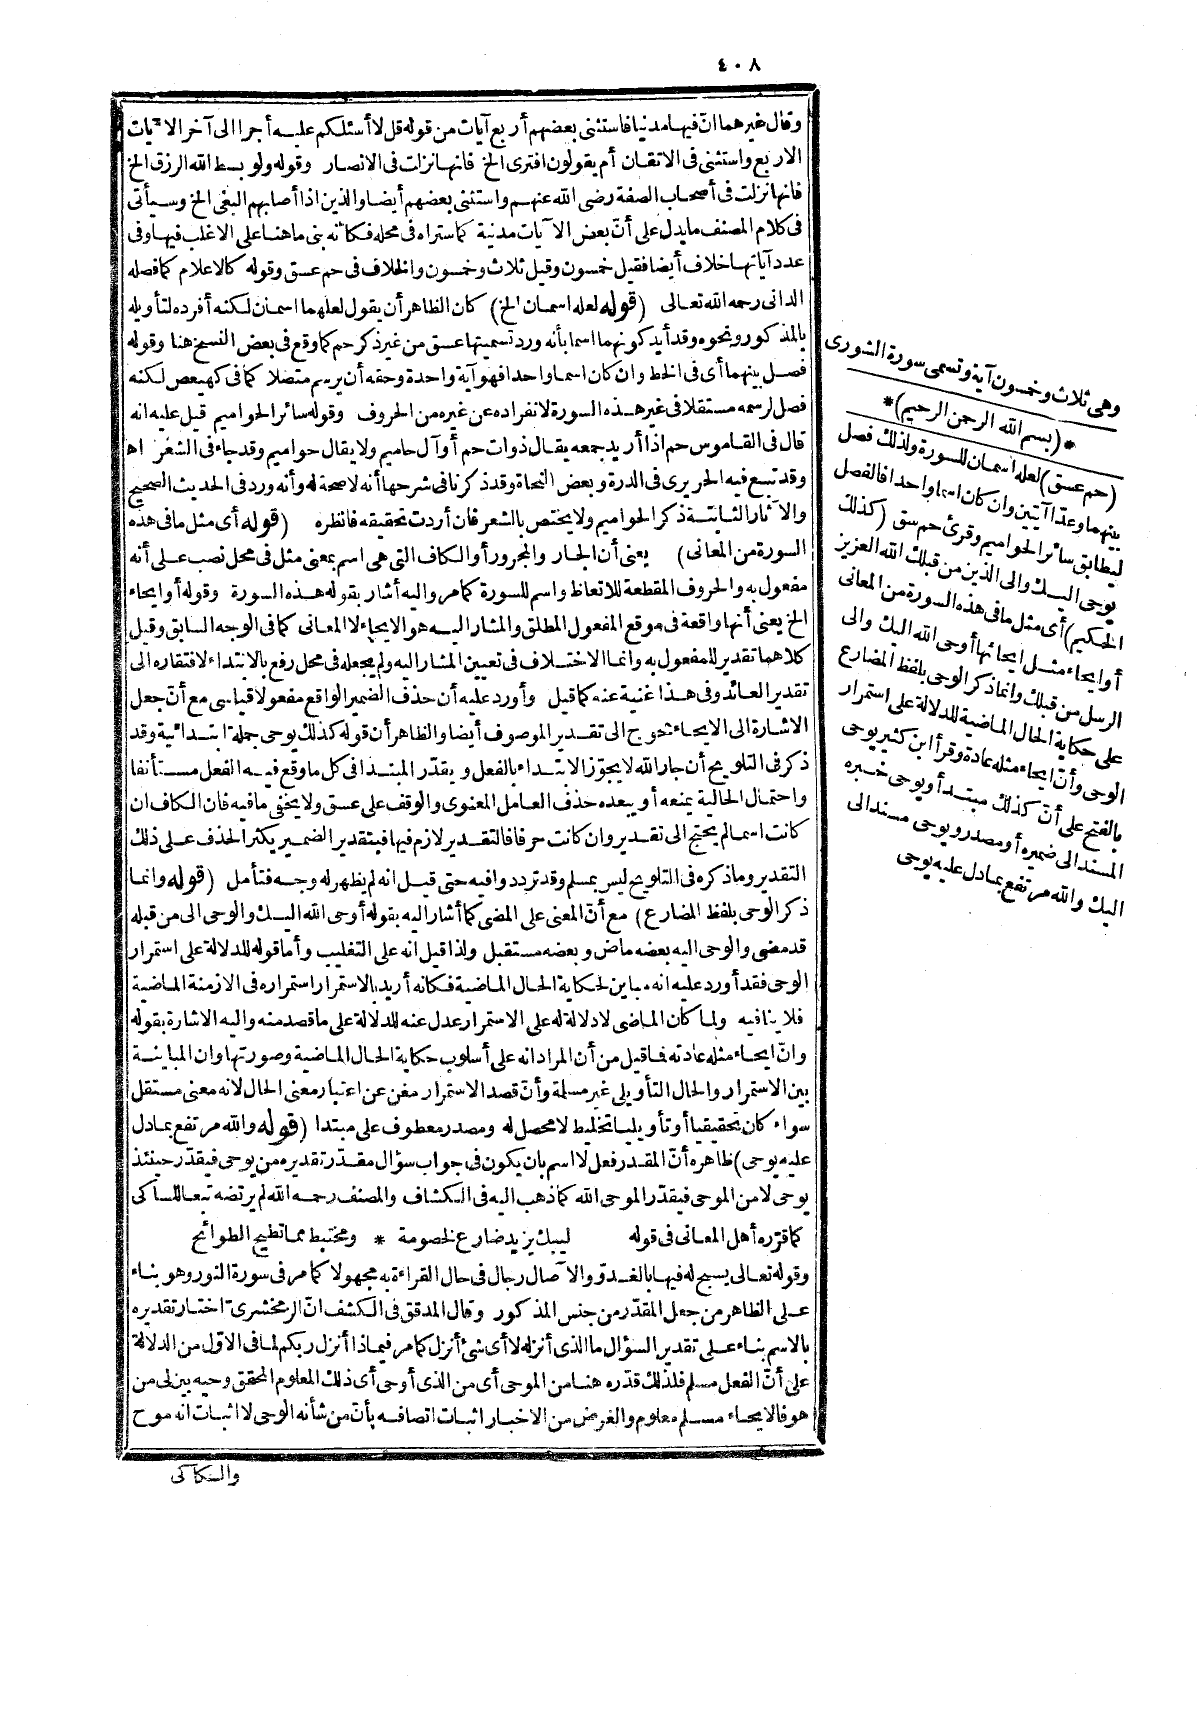 ٤٠٨
وقال غيرهما انّ فيها مدنيا فاستثنى بعضهم أربع آيات من قوله قل لا أسئلكم عليه أجرا الى آخر الآيات
الاربع واستثنى فى الاتقان أم يقولون افترى الخ فانها نزلت فى الانصار وقوله ولو بسط الله الرزق الخ
فانها نزلت فى أصحاب الصفة رضى الله عنهم واستثنى بعضهم أيضا والذين اذا أصابهم البغى الخ وسيأتى
فى كلام المصنف ما يدل على أنّ بعض الآيات مدنية كما ستراه فى محله فكأنه بنى ما هنا على الاغلب فيها وفى
عدد آياتها خلاف أيضا فقيل خمسون وقيل ثلاث وخمسون والخلاف فى حم عسق وقوله كالاعلام كما فصله
الدانى رحمه الله تعالى (قوله لعله اسمان الخ) كان الظاهر أن يقول لعلهما اسمان لكنه أفرده لتأويله
بالمذكور ونحوه وقد أيد كونهما اسما بأنه ورد تسميتها عسق من غير ذكر حم كما وقع فى بعض النسخ هنا وقوله
فصل بينهما أى فى الخط وان كان اسما واحدا فهو آية واحدة وحقه أن يرسم متصلا كما فى كهيعص لكنه
فصل لرسمه مستقلا فى غير هذه السورة لانفراده عن غيره من الحروف وقوله سائر الحواميم قيل عليه انه
قال فى القاموس حم اذا أريد جمعه يقال ذوات حم أو آل حاميم ولا يقال حواميم وقد جاء فى الشعر اه
وقد تبع فيه الحريرى فى الدرة وبعض النحاة وقد ذكرنا فى شرحها أنه لا صحة له وأنه ورد فى الحديث الصحيح
والآثار الثابتة ذكر الحواميم ولا يختص بالشعر فان أردت تحقيقه فانظره (قوله أى مثل ما فى هذه
السورة من المعانى) يعنى أن الجار والمجرور أو الكاف التى هى اسم بمعنى مثل فى محل نصب على أنه
مفعول به والحروف المقطعة للاتعاظ واسم للسورة كما مر واليه أشار بقوله هذه السورة وقوله أو ايحاء
الخ يعنى أنها واقعة فى موقع المفعول المطلق والمشار اليه هو الايحاء لا المعانى كما فى الوجه السابق وقيل
كلاهما تقدير للمفعول به وانما الاختلاف فى تعيين المشار اليه ولم يجعله فى محل رفع بالابتداء لافتقاره الى
تقدير العائد وفى هذا غنية عنه كما قيل وأورد عليه أن حذف الضمير الواقع مفعولا قياسى مع أنّ جعل
الاشارة الى الايحاء تحوج الى تقدير الموصوف أيضا والظاهر أن قوله كذلك يوحى جملة ابتدائية وقد
ذكر فى التلويح أن جار الله لا يجوّز الابتداء بالفعل ويقدّر المبتدا فى كل ما وقع فيه الفعل مستأنفا
واحتمال الحالية يمنعه أو يبعده حذف العامل المعنوى والوقف على عسق ولا يخفى ما فيه فان الكاف ان
كانت اسما لم يحتج الى تقدير وان كانت حرفا فالتقدير لازم فيها فبتقدير الضمير يكثر الحذف على ذلك
التقدير وما ذكره فى التلويح ليس بمسلم وقد تردد وافيه حتى قيل انه لم يظهر له وجه فتأمل (قوله وانما
ذكر الوحى بلفظ المضارع) مع أنّ المعنى على المضى كما أشار اليه بقوله أوحى الله اليك والوحى الى من قبله
قد مضى والوحى اليه بعضه ماض وبعضه مستقبل ولذا قيل انه على التغليب وأما قوله للدلالة على استمرار
الوحى فقد أورد عليه انه مباين لحكاية الحال الماضية فكانه أريد بالاستمرار استمراره فى الازمنة الماضية
فلا ينافيه ولما كان الماضى لا دلالة له على الاستمرار عدل عنه للدلالة على ما قصد منه واليه الاشارة بقوله
وانّ ايحاء مثله عادته فما قيل من أن المراد انه على أسلوب حكاية الحال الماضية وصورتها وان المباينة
بين الاستمرار والحال التأويلى غير مسلمة وأنّ قصد الاستمرار مغن عن اعتبار معنى الحال لانه معنى مستقل
سواء كان تحقيقيا أو تأويليا تخليط لا محصل له ومصدر معطوف على مبتدا (قوله والله مرتفع بما دل
عليه يوحى) ظاهره أنّ المقدر فعل لا اسم بان يكون فى جواب سؤال مقدّر تقديره من يوحى فيقدر حينئذ
يوحى لا من الموحى فيقدّر الموحى الله كما ذهب اليه فى الكشاف والمصنف رحمه الله لم يرتضه تبعا للسكاكى
كما قرّره أهل المعانى فى قوله ليبك يزيد ضارع لخصومة * ومختبط مما تطيح الطوائح
وقوله تعالى يسبح له فيها بالغدوّ والآصال رجال فى حال القراءة به مجهولا كما مر فى سورة النور وهو بناء
على الظاهر من جعل المقدّر من جنس المذكور وقال المدقق فى الكشف انّ الزمخشرىّ اختار تقديره
بالاسم بناء على تقدير السؤال ما الذى أنزله لا أى شئ أنزل كما مر فى ماذا أنزل ربكم لما فى الاوّل من الدلالة
على أنّ الفعل مسلم فلذلك قدّره هنا من الموحى أى من الذى أوحى أى ذلك المعلوم المحقق وحيه بين لى من
هو فالايحاء مسلم معلوم والغرض من الاخبار اثبات اتصافه بأنّ من شأنه الوحى لا اثبات انه موح
والسكاكى
وهى ثلاث وخمسون آية وتسمى سورة الشورى
*(بسم الله الرحمن الرحيم)*
(حم عسق) لعله اسمان للسورة ولذلك فصل
بينهما وعدّا آيتين وان كان اسما واحدا فالفصل
ليطابق سائر الحواميم وقرئ حم سق (كذلك
يوحى اليك والى الذين من قبلك الله العزيز
الحكيم) أى مثل ما فى هذه السورة من المعانى
أو ايحاء مثل ايحائها أوحى الله اليك والى
الرسل من قبلك وانما ذكر الوحى بلفظ المضارع
على حكاية الحال الماضية للدلالة على استمرار
الوحى وأنّ ايحاء مثله عادة وقرأ ابن كثير يوحى
بالفتح على أنّ كذلك مبتدأ ويوحى خبره
المسند الى ضميره أو مصدر ويوحى مسند الى
اليك والله مرتفع بما دل عليه يوحى